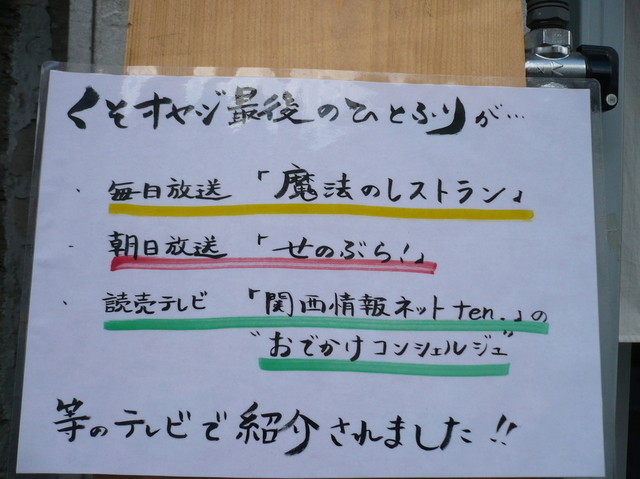 くそオヤジ最後のひとふりが…
・毎日放送 「魔法のレストラン」
・朝日放送 「せのぶら!」
・読売テレビ 「関西情報ネットten.」の
"おでかけコンシェルジュ"
等のテレビで紹介されました!!